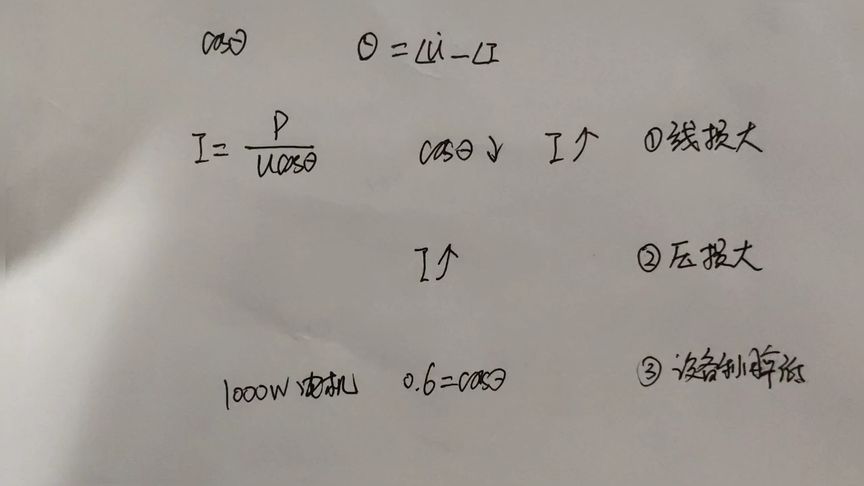 cosθ θ=∠U̇-∠I
I=P/Ucosθ cosθ↓ I↑ ①线损大
I↑ ②压损大
1000W电机 0.6=cosθ ③设备利用率低